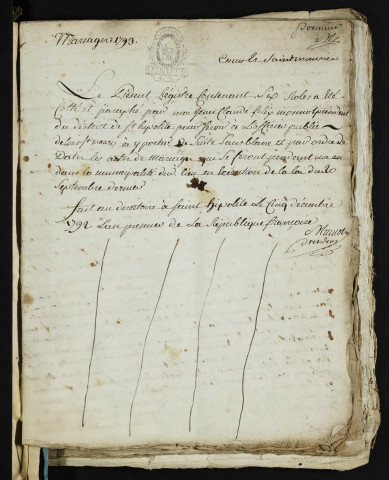 Mariages 1793.
Cour la Saint maurice
Le Présent Registre Contenant Six Roles a été
Cotté et paraphé par moi Jean Claude felix monnot president
du district de St hipolite pour servir à L'officier public
de Cour St maurice à y porter de Suite Sans blanc et par ordre de
Dates les actes de mariage qui se feront pendent un an
dans la municipalité dud. lieu en execution de la loi du 20
Septembre dernier
fait au directoire à Saint hipolite Le Cinq décembre
1792 L'an premier de La République françoise
Monnot
President